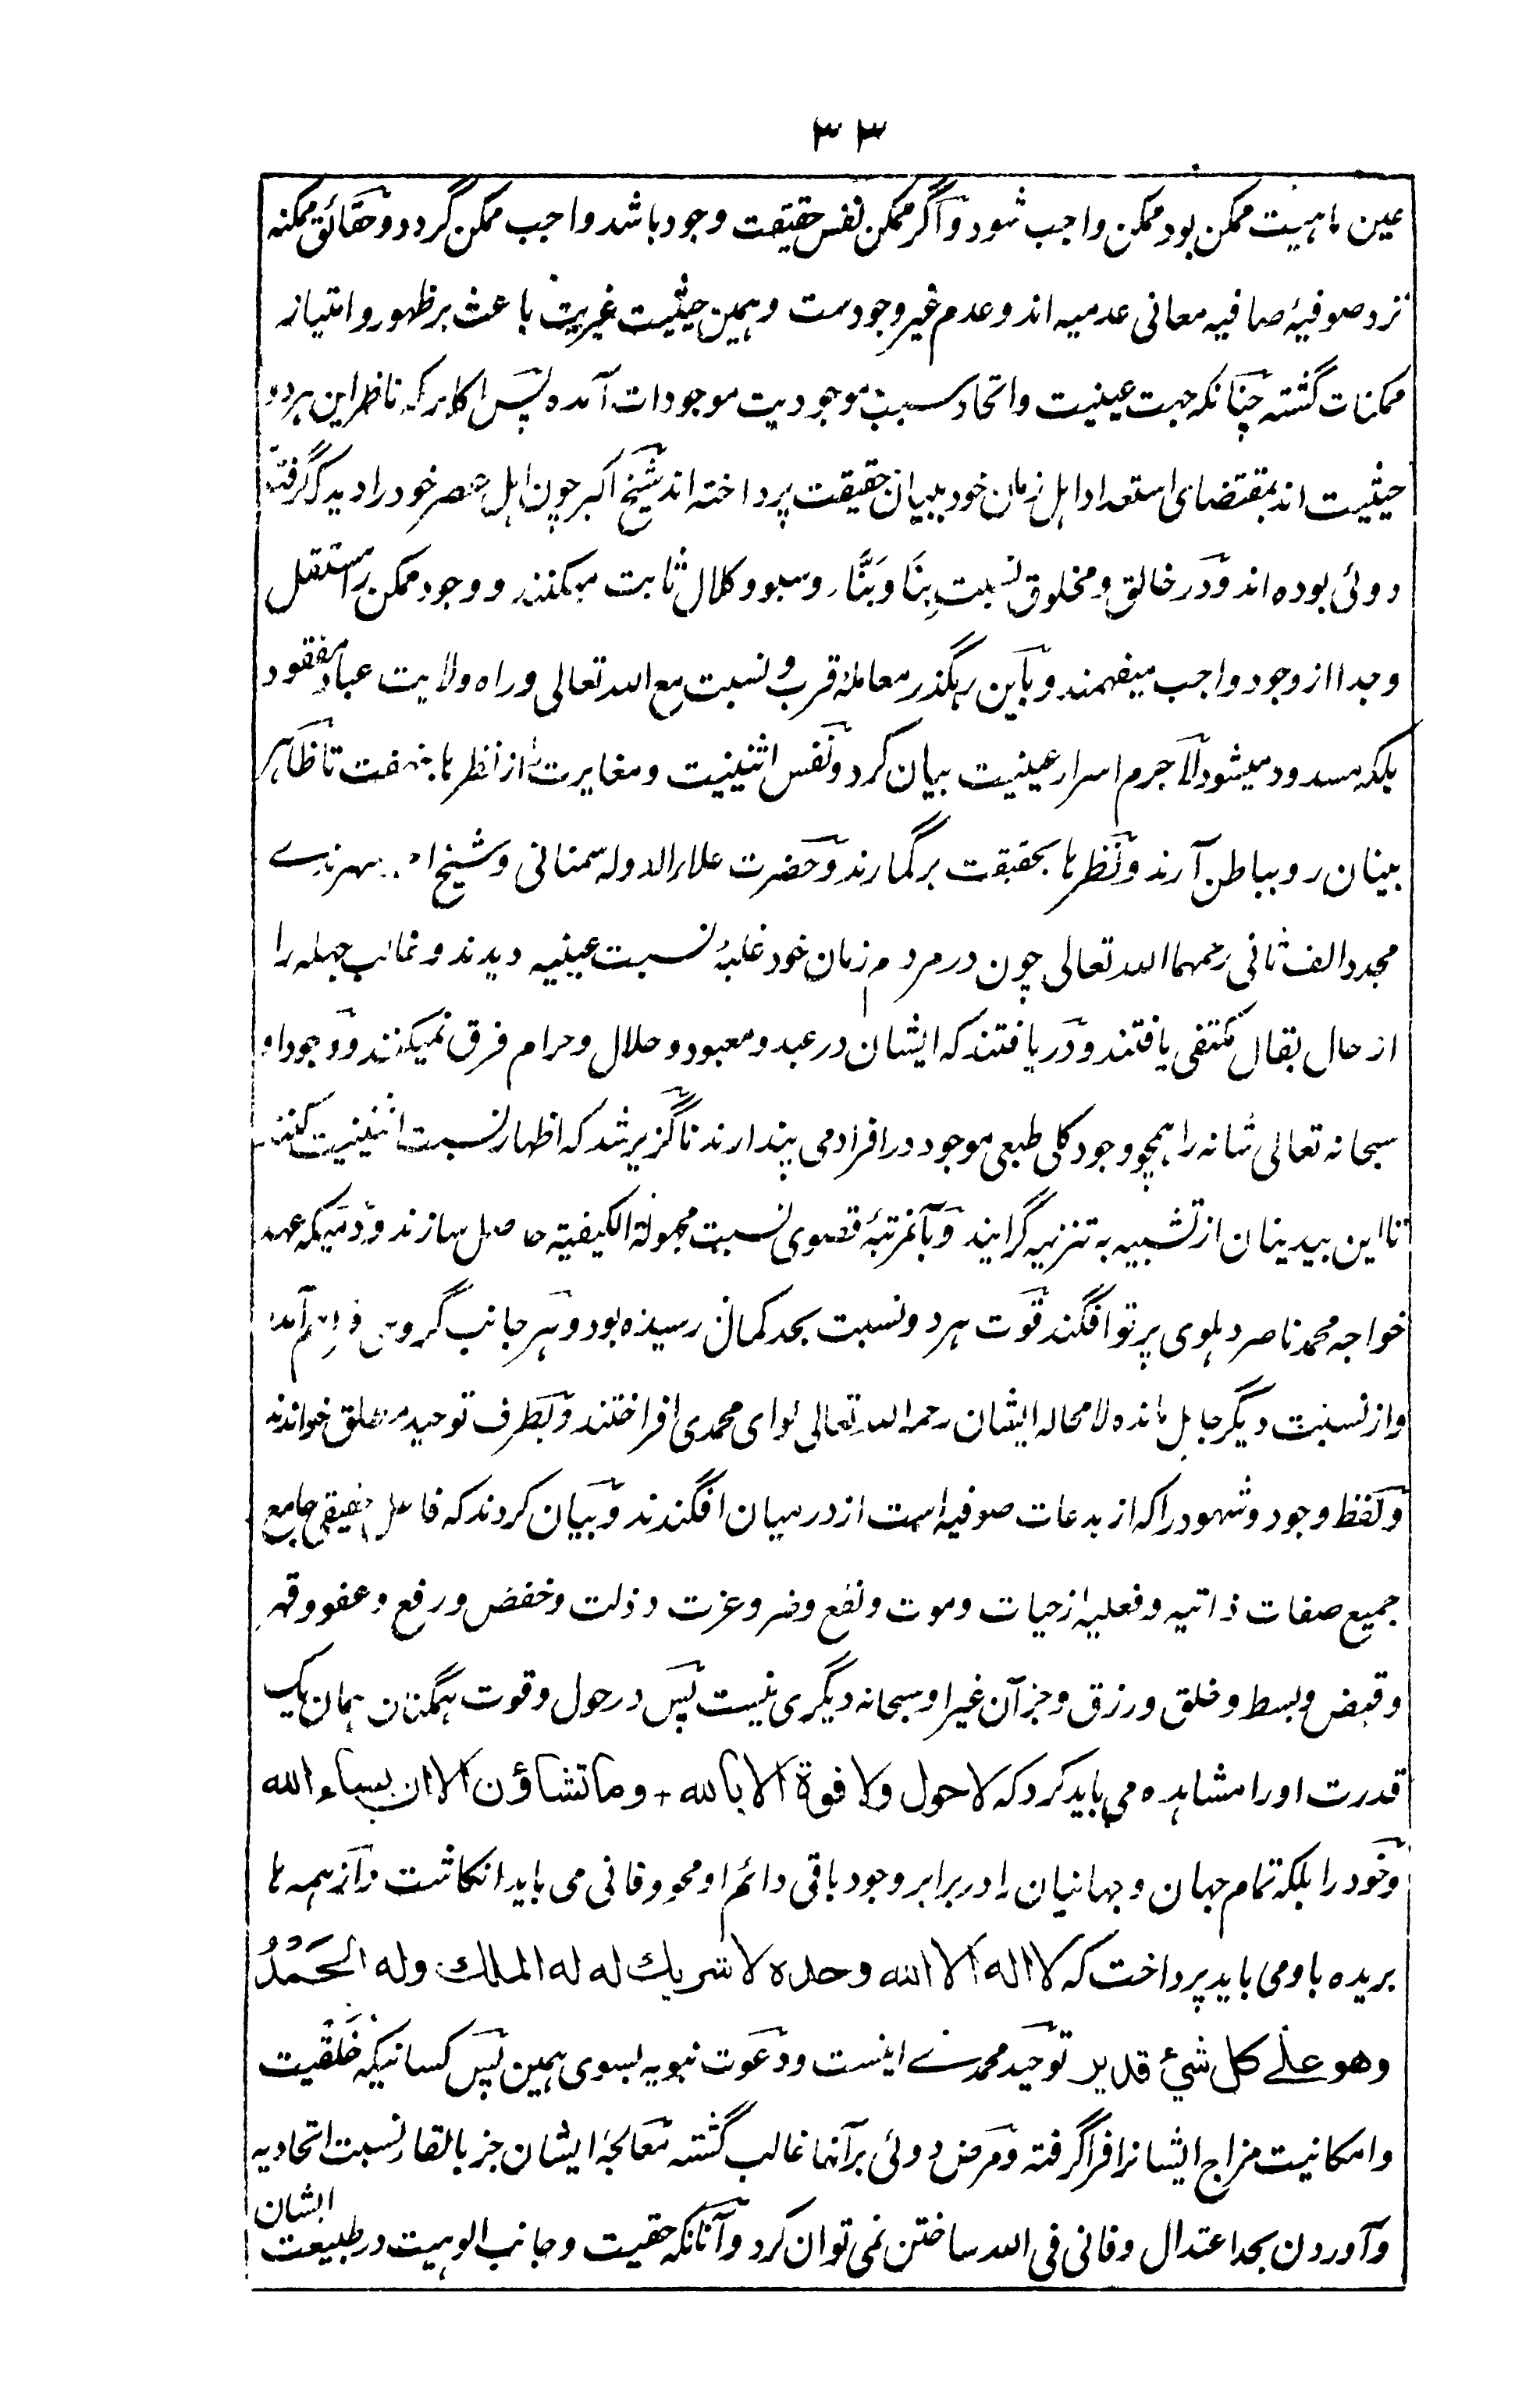 ۳۳
عین ماهیت ممکن بود ممکن واجب شود و اگر ممکن نفس حقیقت وجود باشد واجب ممکن گردد و حقائق ممکنه
نزد صوفیهٔ صافیه معانی عدمیه اند و عدم غیر وجودست و همین حیثیت غیریت باعث بر ظهور و امتیاز
ممکنات گشته چنانکه جهت عینیت و اتحاد سبب موجودیت موجودات آمده پس اکابر که ناظر این هر دو
حیثیت اند بمقتضای استعداد اهل زمان خود ببیان حقیقت پرداخته اند شیخ اکبر چون اهل عصر خود را دید که گرفتهٔ
دوئی بوده اند و در خالق و مخلوق نسبتِ بِنَا وَ بَنَّاء و سبو و کلال ثابت میکنند و وجود ممکن را مستقل
و جدا از وجود واجب میفهمند و باین رهگذر معاملهٔ قرب و نسبت مع الله تعالی و راه ولایت عباد مفقود
بلکه مسدود میشود لاجرم اسرار عینیت بیان کرد و نفس اثنینیت و مغایرت را از نظرها بنهفت تا ظاهر
بینان رو بباطن آرند و نظرها بحقیقت برگمارند و حضرت علاءالدوله سمنانی و شیخ سهرندے
مجدد الف ثانی رحمهما الله تعالی چون در مردم زمان خود غلبهٔ نسبت عینیه دیدند و غالب جهله را
از حال بقال مکتفی یافتند و دریافتند که ایشان در عبد و معبود و حلال و حرام فرق نمیکنند و وجود او
سبحانه تعالی شانه را همچو وجود کلی طبعی موجود در افراد می پندارند ناگزیر شد که اظهار نسبت اثنینیت کنند
تا این بیدینان از تشبیه به تنزیه گرایند و بآنمرتبهٔ قصوی نسبت مجهولة الکیفیة حاصل سازند و دمیکه عهد
خواجه محمد ناصر دهلوی پرتو افگند قوت هر دو نسبت بحد کمال رسیده بود و هر جانب گروهی فراهم آمده
و از نسبت دیگر جاهل مانده لامحاله ایشان رحمه الله تعالی لوای محمدی افراختند و بطرف توحید مطلق خواندند
و لفظ وجود و شهود را که از بدعات صوفیه است از درمیان افگندند و بیان کردند که فاعل حقیقی جامع
جمیع صفات ذاتیه و فعلیه از حیات و موت و نفع و ضر و عزت و ذلت و خفض و رفع و عفو و قهر
و قبض و بسط و خلق و رزق و جز آن غیر او سبحانه دیگری نیست پس در حول و قوت همگنان همان یک
قدرت او را مشاهده می باید کرد که لا حول ولا قوة الا بالله + وما تشاؤن الا ان یشاء الله
و خود را بلکه تمام جهان و جهانیان را در برابر وجود باقی دائم او محو و فانی می باید انگاشت و از همه ها
بریده باو می باید پرداخت که لا اله الا الله وحده لا شریك له له الملك وله الحَمْدُ
وهو علے کل شيءٍ قدیر توحید محمدے اینست و دعوت نبویه بسوی همین پس کسانیکه خلقیت
و امکانیت مزاج ایشانرا فراگرفته و مرض دوئی بر آنها غالب گشته معالجهٔ ایشان جز بالقاء نسبت اتحادیه
و آوردن بحد اعتدال و فانی فی الله ساختن نمی توان کرد و آنانکه حقیت و جانب الوهیت در طبیعت ایشان